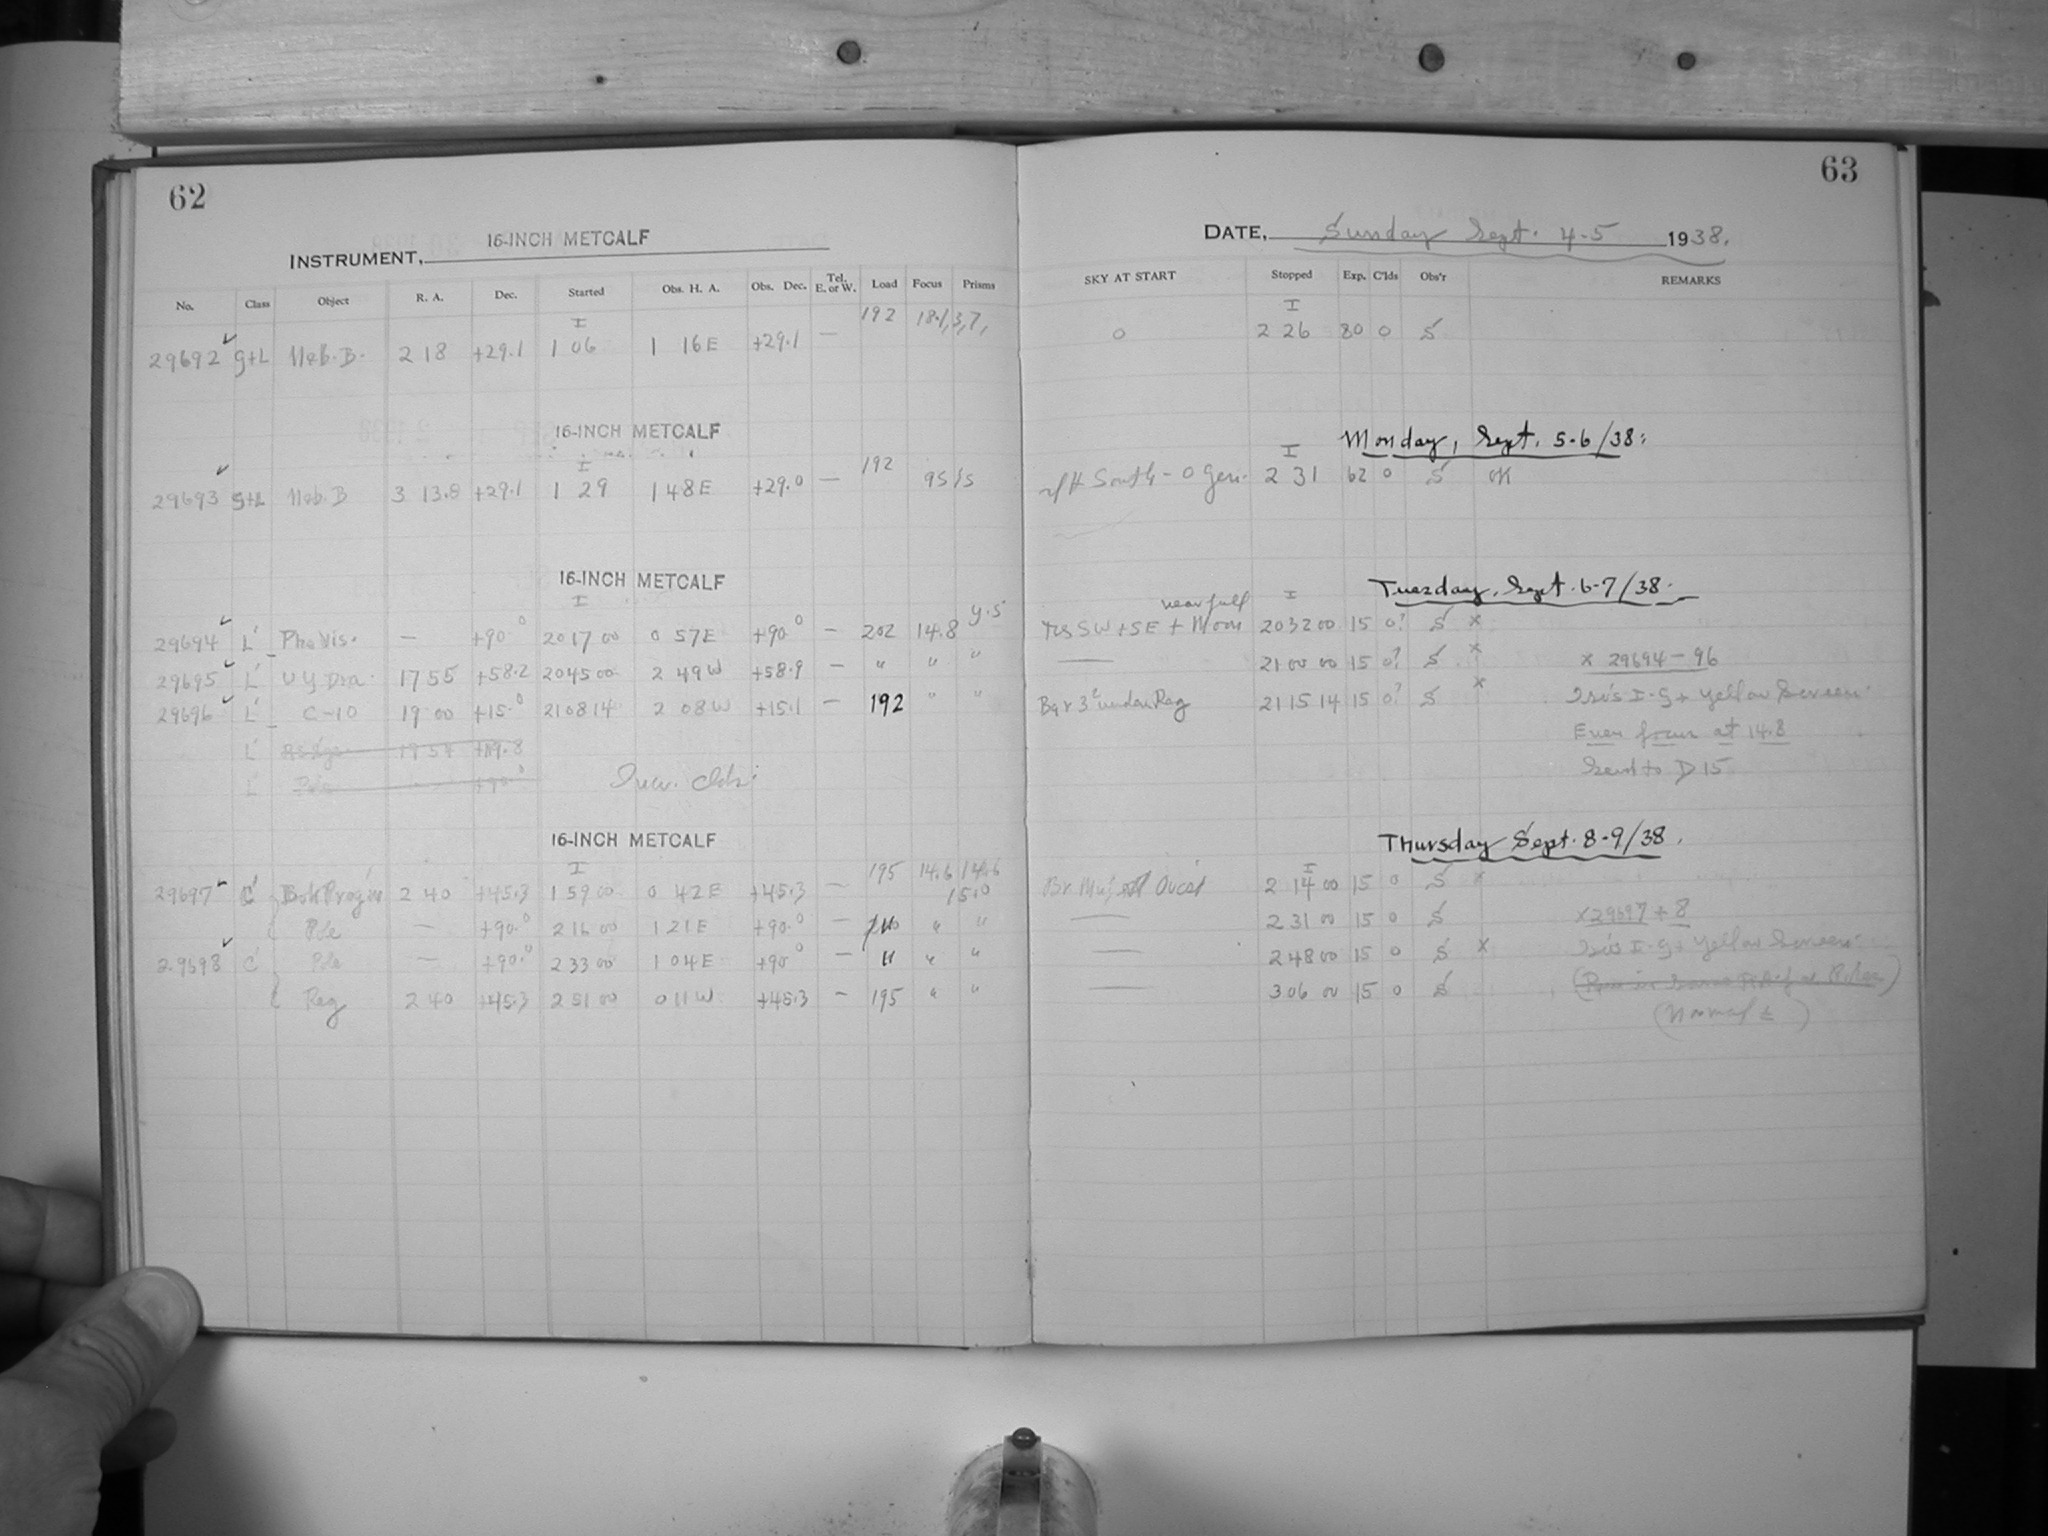 62
INSTRUMENT, 16-INCH METCALF
No. Class Object R. A. Dec. Started Obs. H. A. Obs. Dec. Tel. E. or W. Load Focus Prisms
I
29692 G+L Neb. B. 2 18 +29.1 1 06 1 16 E +29.1 — 192 18.1, 3, 7,
16-INCH METCALF
I
29693 G+L Neb. B 3 13.8 +29.1 1 29 1 48 E +29.0 — 192
16-INCH METCALF
I
29694 L' Pho Vis. — +90.0 20 17 00 0 57 E +90.0 — 202 14.8 Y.S
29695 L' UY Dra. 17 55 +58.2 20 45 00 2 49 W +58.9 — " " "
29696 L' C-10 19 00 +15.0 21 08 14 2 08 W +15.1 — 192 " "
L'
L' Pole +90.0 Incr. Clds.
16-INCH METCALF
I
29697 C' 2 40 +45.3 1 59 00 0 42 E +45.3 — 195 14.6 14.6 15.0
Pole — +90.0 2 16 00 1 21 E +90.0 — " "
29698 C' Pole — +90.0 2 33 00 1 04 E +90.0 — " " "
Reg 2 40 +45.3 2 51 00 0 11 W +45.3 — 195 " "
63
DATE, Sunday Sept. 4-5 1938.
SKY AT START Stopped Exp. C'lds Obs'r REMARKS
I
0 2 26 80 0 S
Monday, Sept. 5-6/38.
I
South - 0 Gen. 2 31 62 0 S OK
Tuesday, Sept. 6-7/38.
near full I
SW + SE + Moon 20 32 00 15 0? S x
— 21 00 00 15 0? S x x 29694-96
under Reg 21 15 14 15 0? S x Isis I-G + Yellow Screen.
Even focus at 14.8
Send to D 15
Thursday Sept. 8-9/38.
I
2 14 00 15 0 S x
— 2 31 00 15 0 S x 29697 + 8
— 2 48 00 15 0 S x Isis I-G + Yellow Screen.
— 3 06 00 15 0 S